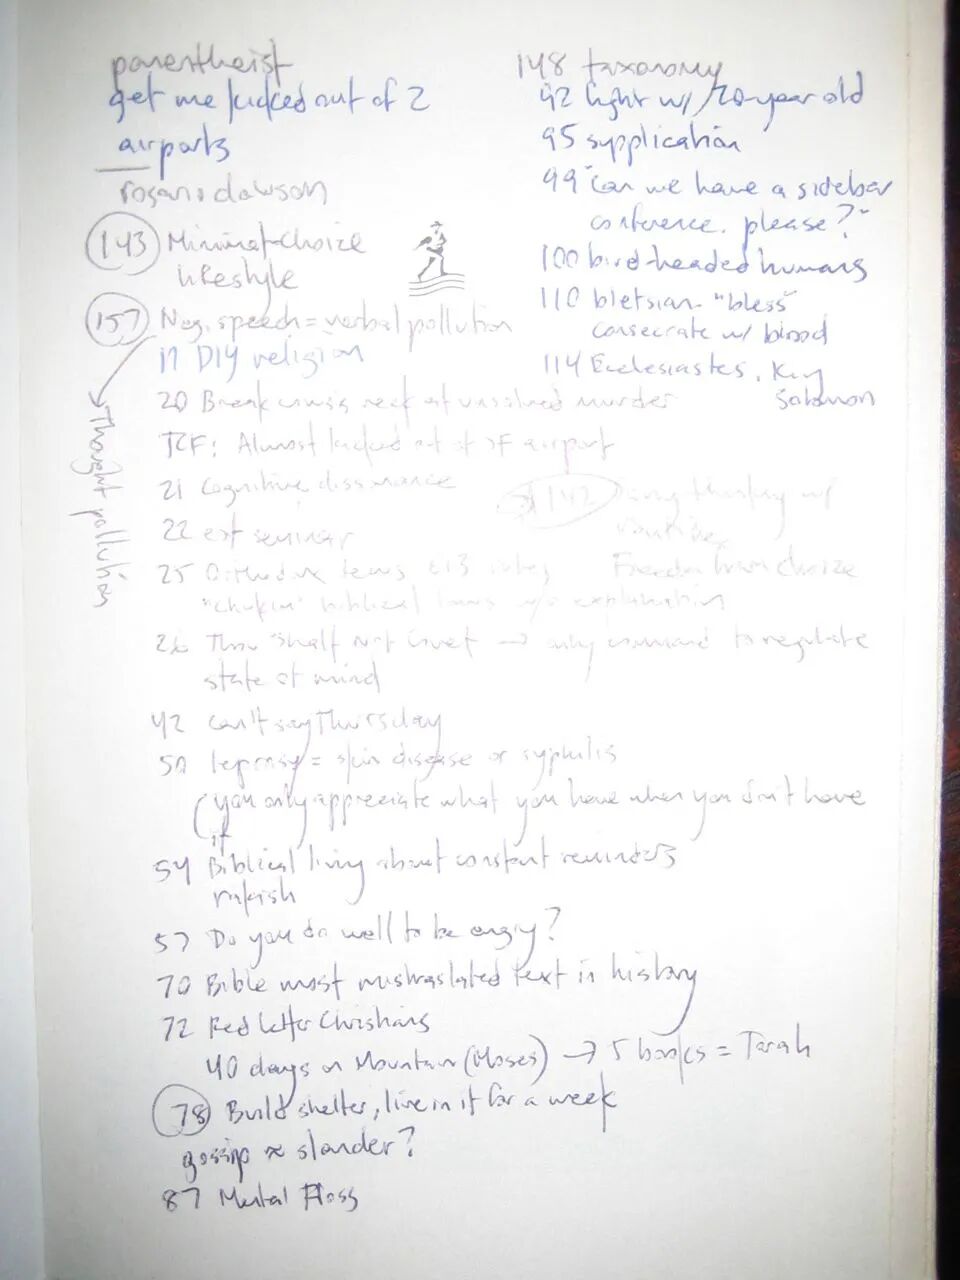 get me kicked out of 2
airports
rosario dawson
143 Minimal-Choice
lifestyle
157 Neg. speech = verbal pollution
Thought pollution
17 DIY religion
20 Break neck at unsolved murder
TCF: Almost kicked out of SF airport
21 Cognitive dissonance
22 est seminar
25 Orthodox
biblical laws w/o explanation
26 Thou shalt not covet → only command to regulate
state of mind
42 can't say Thursday
50 leprosy = skin disease or syphilis
(you only appreciate what you have when you don't have
it
54 Biblical living about constant reminders
rakish
57 Do you do well to be angry?
70 Bible most mistraslated text in history
72 Red letter Christians
40 days on Mountain (Moses) → 5 books = Torah
78 Build shelter, live in it for a week
gossip ≈ slander?
87 Mental Floss
148 taxonomy
92 light w/ 20-year old
95 supplication
99 "Can we have a sidebar
conference, please?"
100 bird-headed humans
110 bletsian - "bless"
consecrate w/ blood
114 Ecclesiastes, King
Solomon
142
Freedom from choice